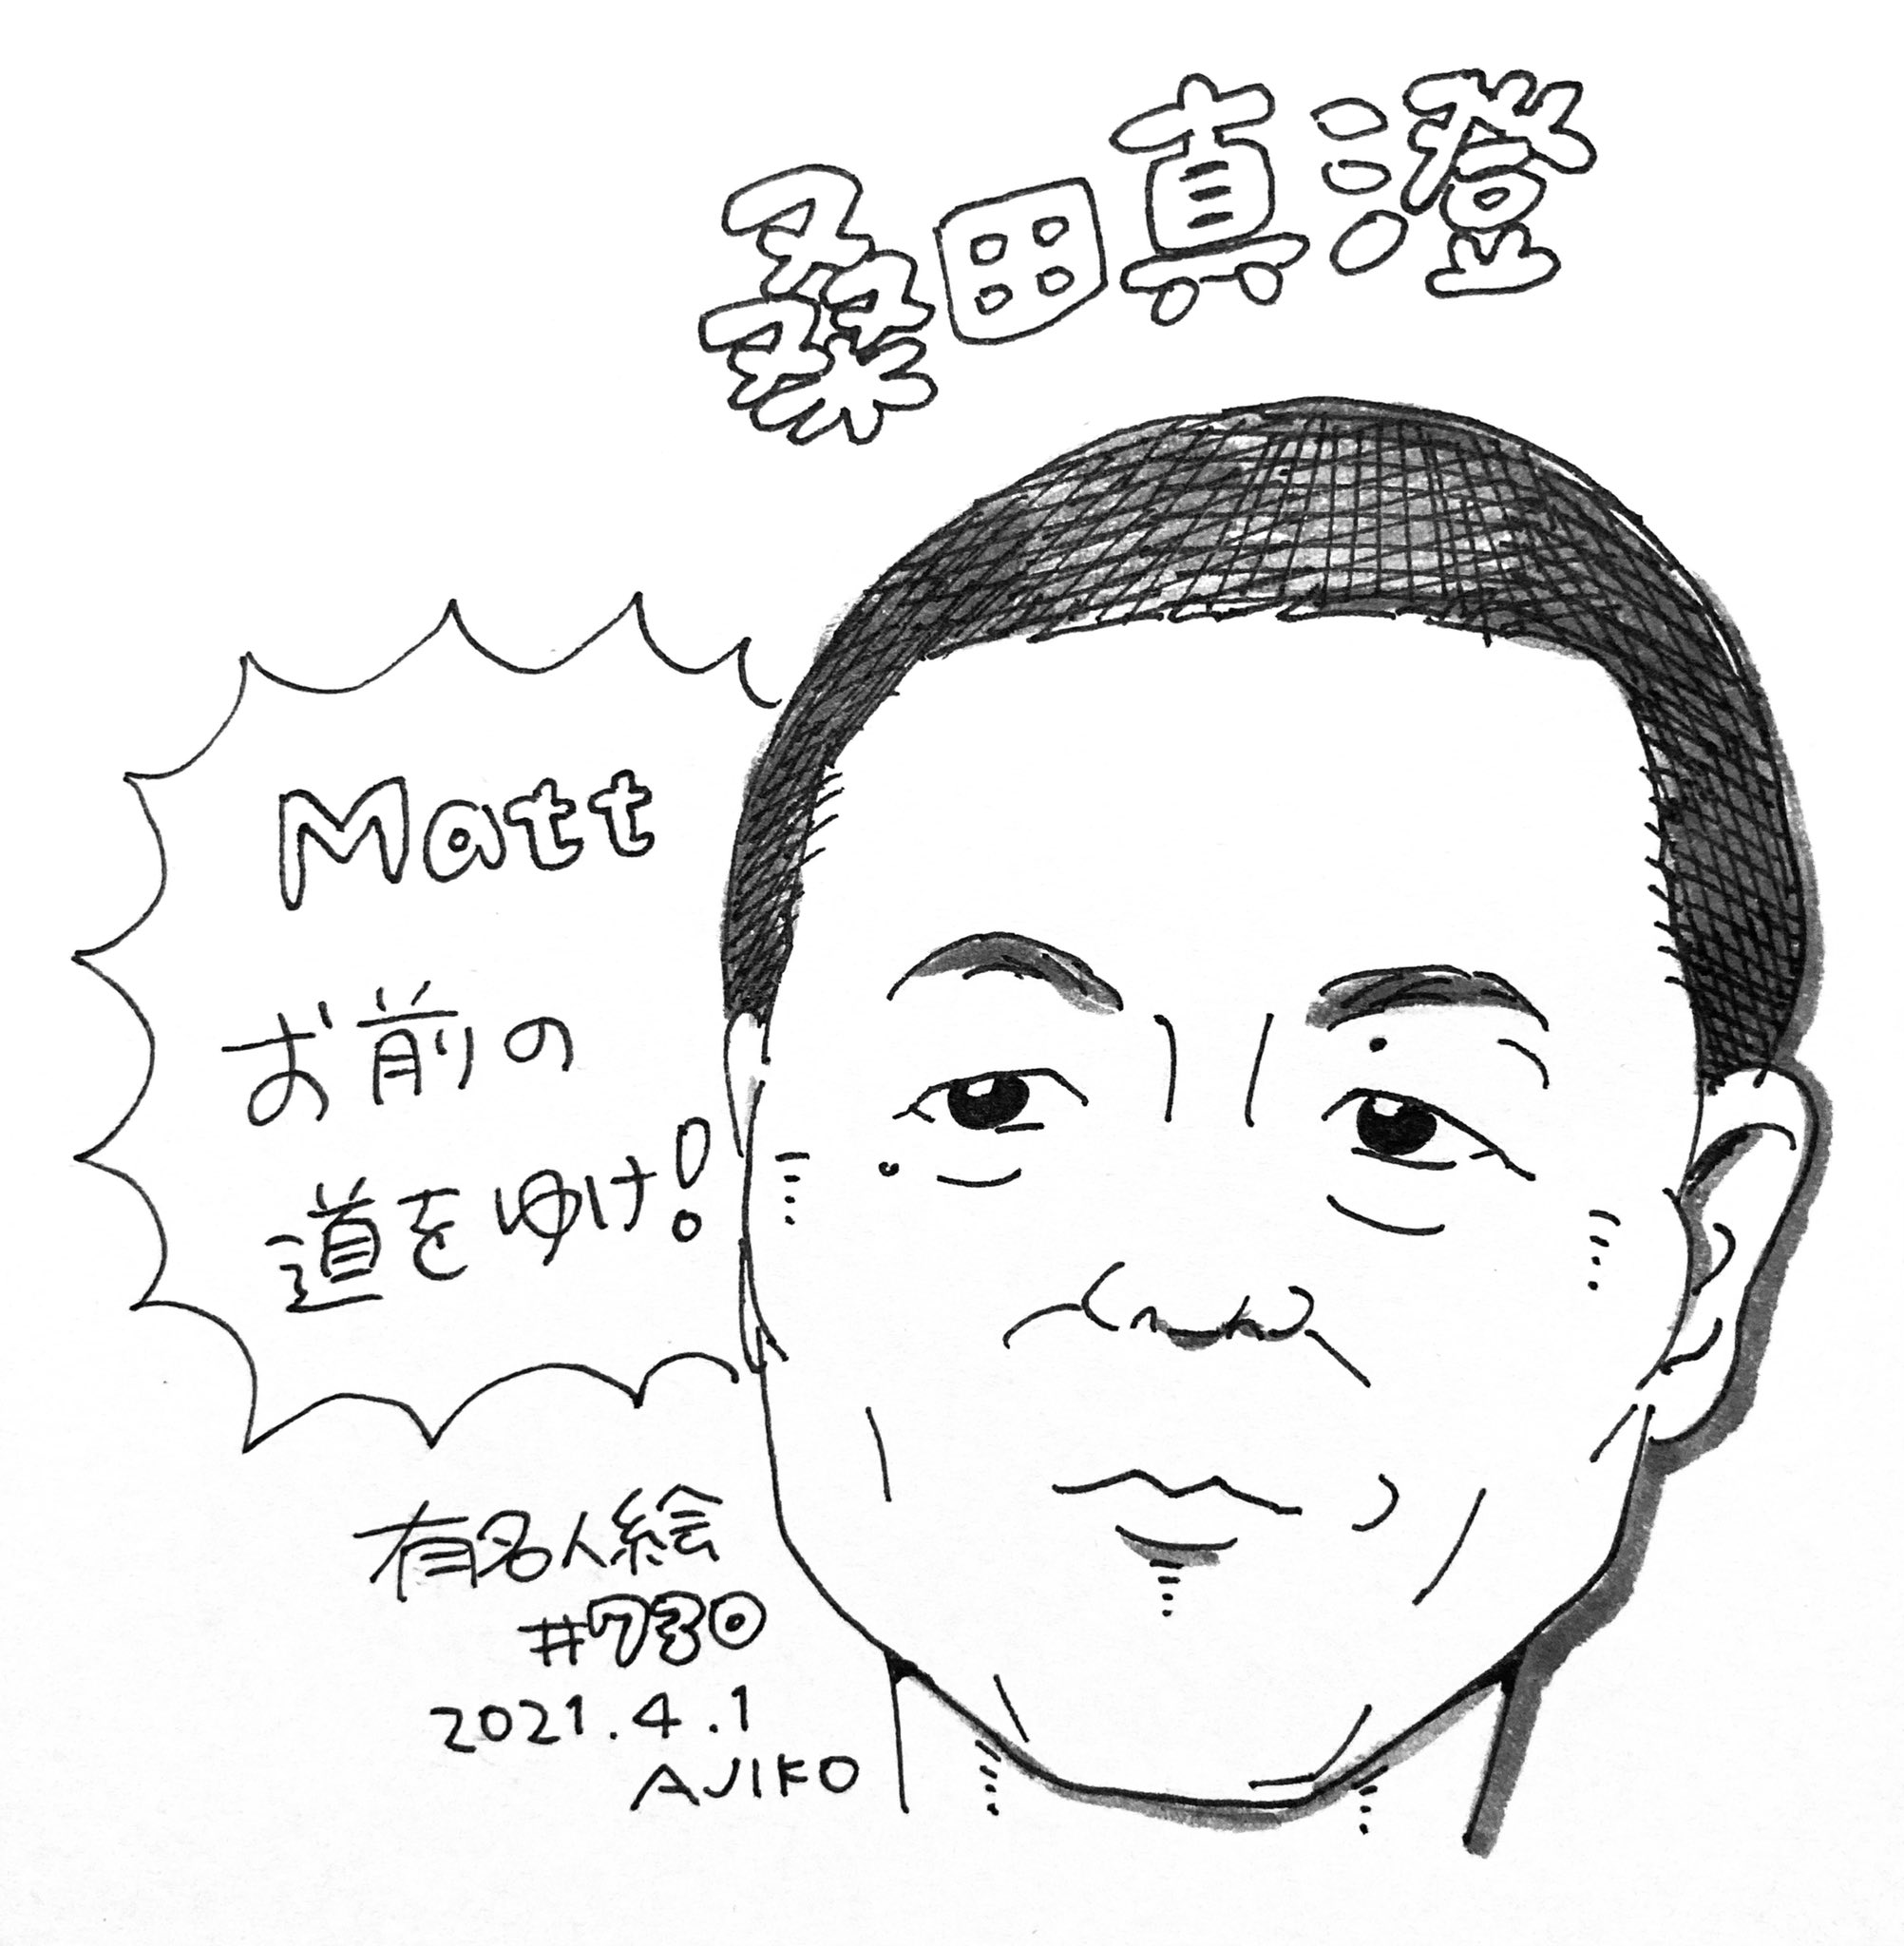 桑田真澄
Matt
お前の
道をゆけ!
有名人絵
#730
2021.4.1
AJIKO